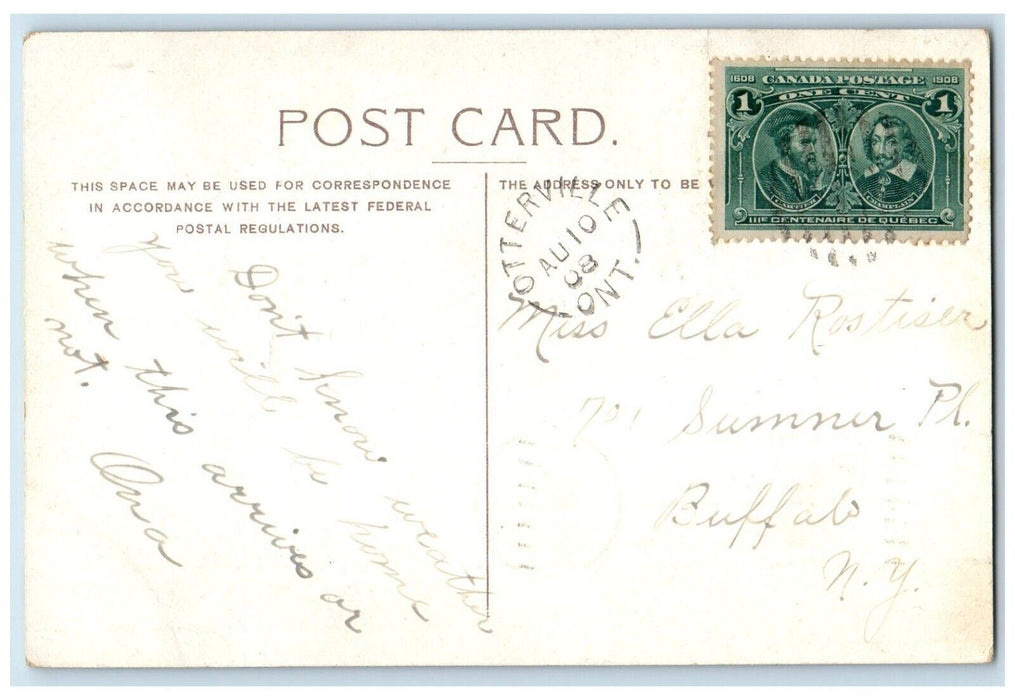 POST CARD.
THIS SPACE MAY BE USED FOR CORRESPONDENCE
IN ACCORDANCE WITH THE LATEST FEDERAL
POSTAL REGULATIONS.
THE ADDRESS ONLY TO BE
1608 CANADA POSTAGE 1908
ONE CENT
1 1
CARTIER CHAMPLAIN
IIIE CENTENAIRE DE QUÉBEC
OTTERVILLE
AU 10
08
ONT.
Don't know weather
you will be home
when this arrives or
not.
Ona
Miss Ella Rostiser
701 Sumner Pl.
Buffalo
N.Y.